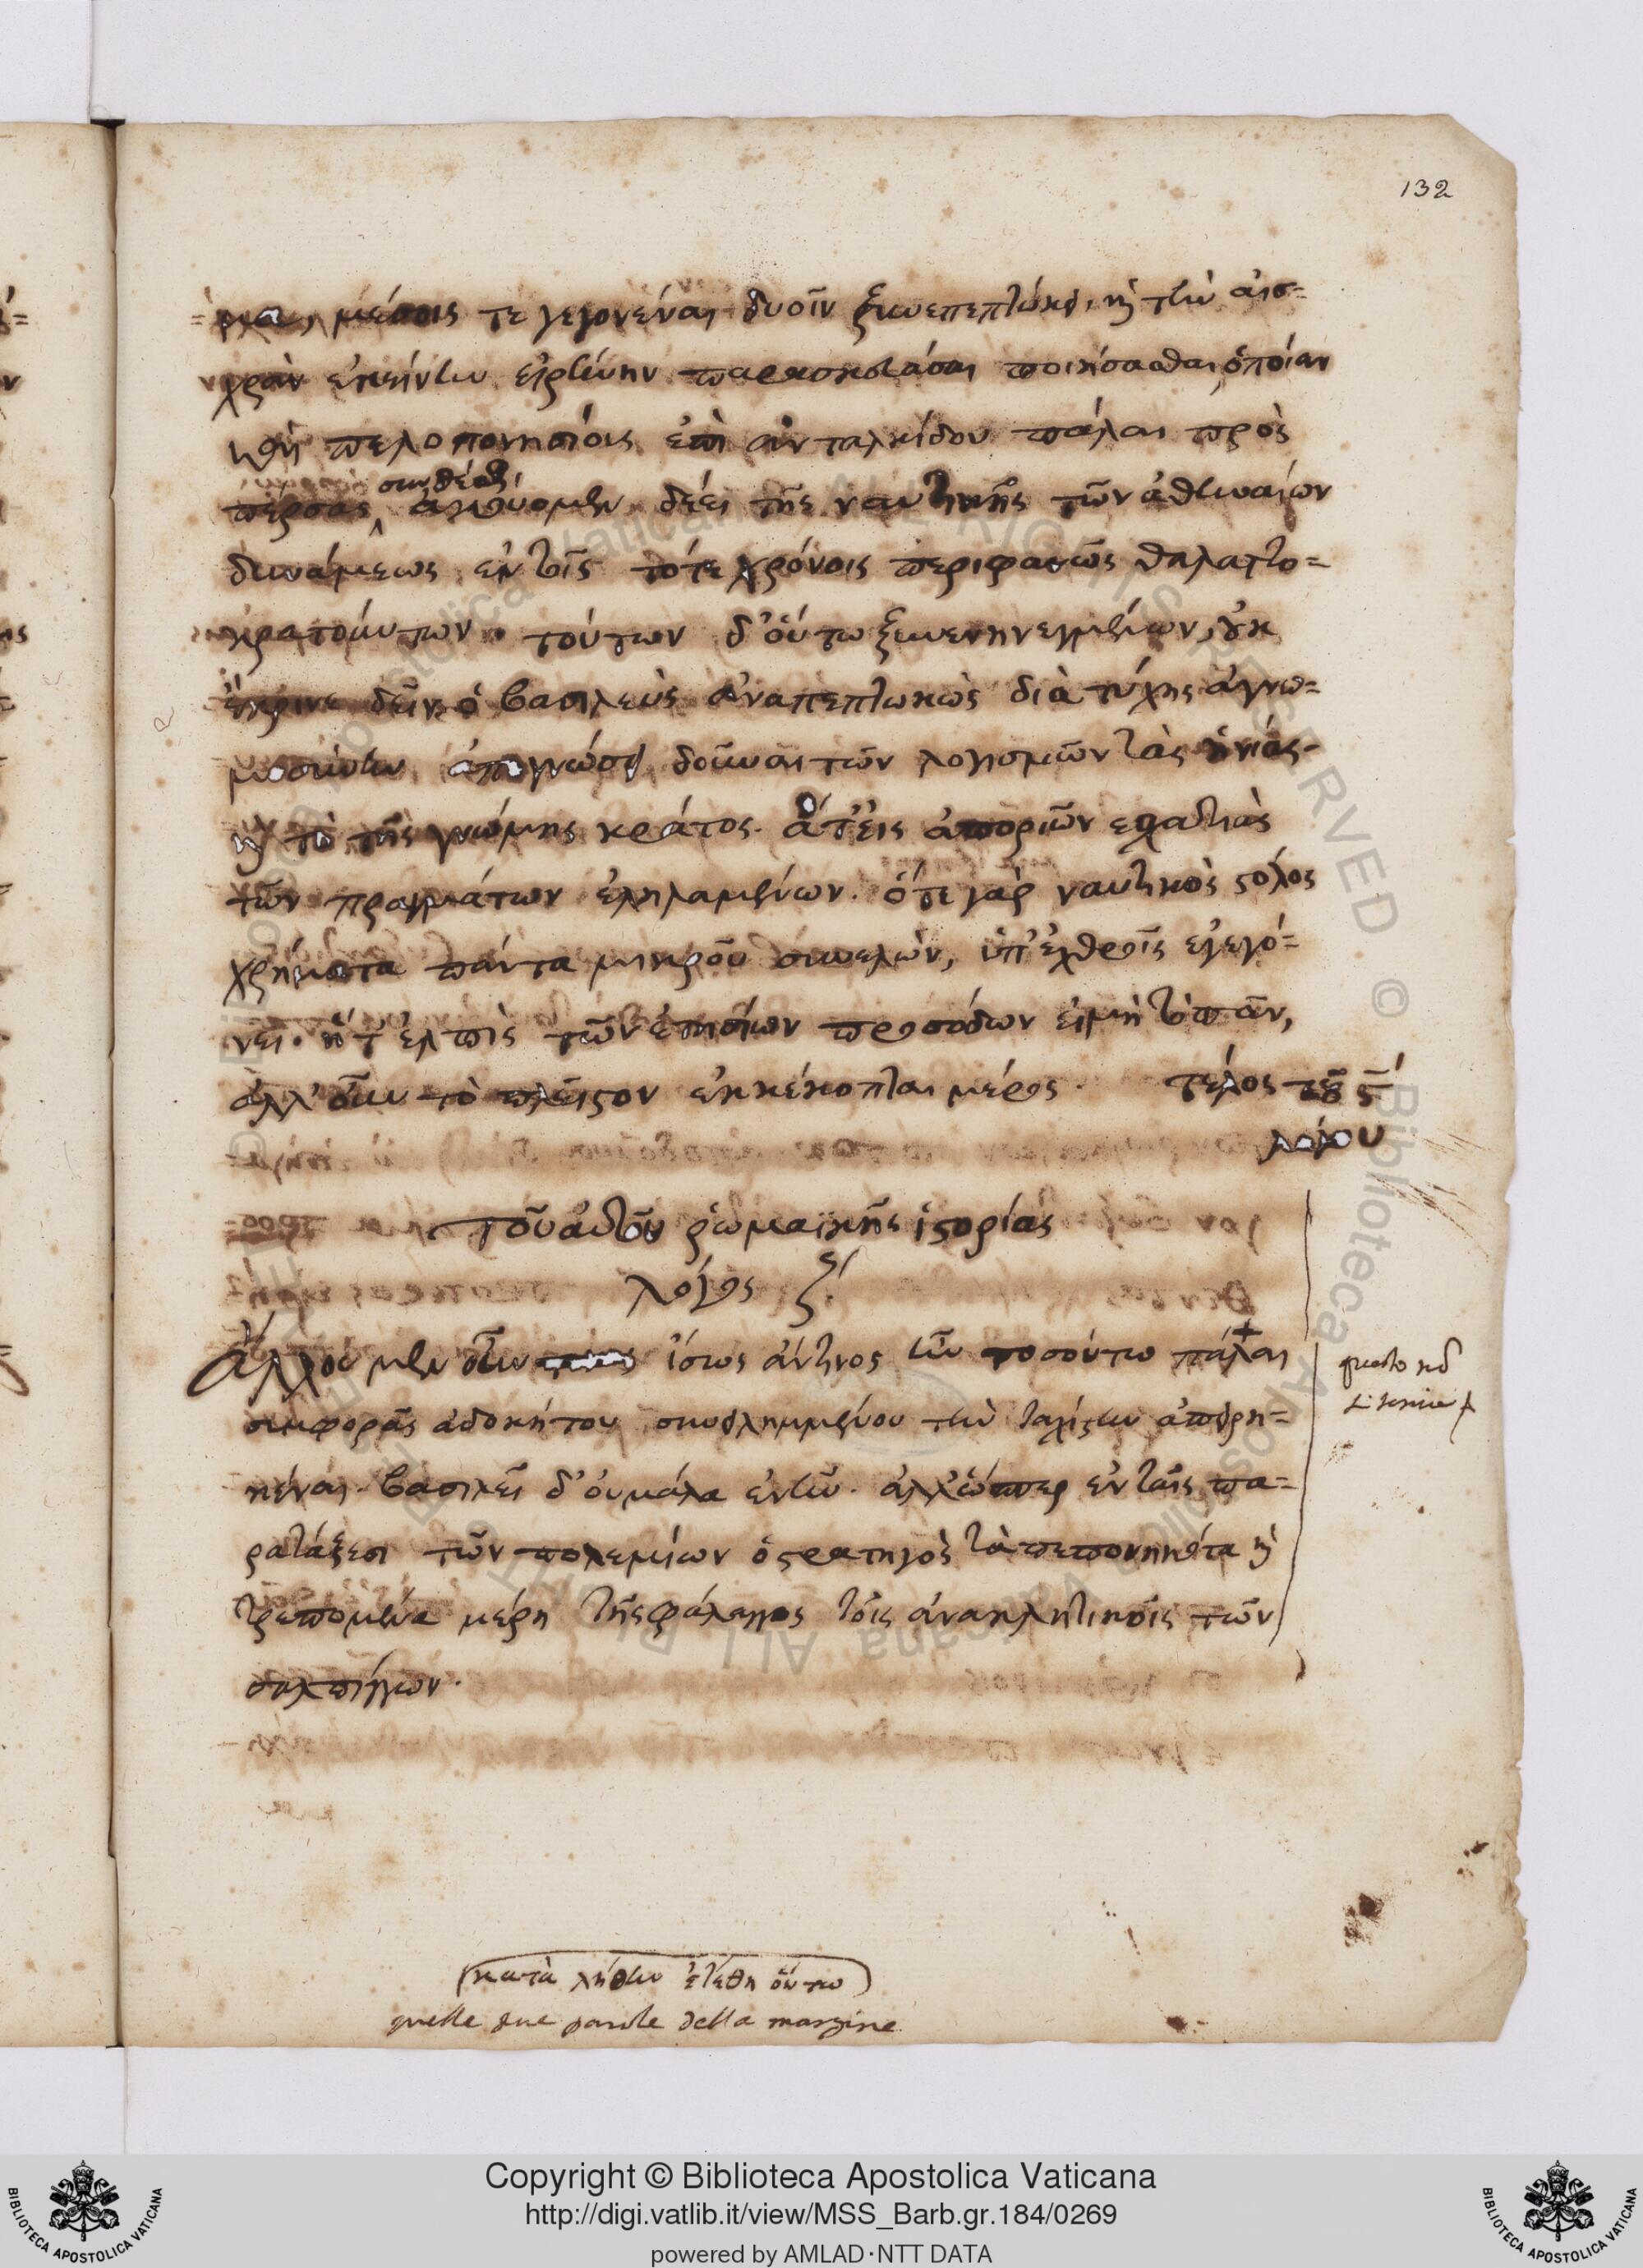 132
μέσοις τε γεγονέναι δυοῖν ξυνεπεπτώκει, καὶ τὴν αἰσ=
χρὰν ἐκείνην εἰρήνην παρασκευάσαι ποιήσασθαι, ὁποίαν
καὶ πελοπονησίοις ἐπὶ ἀνταλκίδου πάλαι πρὸς
συνθέσθαι
πέρσας ἀκούομεν δέει τῆς ναυτικῆς τῶν ἀθηναίων
δυνάμεως ἐν τοῖς τότε χρόνοις περιφανῶς θαλαττο=
κρατούντων. τούτων δ' οὕτω ξυνενηνεγμένων, οὐκ
ἔκρινε δεῖν ὁ βασιλεὺς ἀναπεπτωκὼς διὰ τύχης ἀγνω=
μοσύνην ἀπογνώσει δοῦναι τῶν λογισμῶν τὰς ἡνίας
καὶ τὸ τῆς γνώμης κράτος. ἅτ' εἰς ἀποριῶν ἐσχατιὰς
τῶν πραγμάτων ἐληλαμένων. ὅτε γὰρ ναυτικὸς στόλος
χρήματα πάντα μικροῦ συνελὼν, ὑπ' ἐχθροῖς ἐγεγό=
νει. ἥ τ' ἐλπὶς τῶν ἐτησίων προσόδων εἰ μὴ τὸ πᾶν,
ἀλλ' οὖν τὸ πλεῖστον ἐκκέκοπται μέρος. τέλος τοῦ ς΄
λόγου
Τοῦ αὐτοῦ ῥωμαϊκῆς ἱστορίας
λόγος ζ΄
Ἄλλου μὲν οὖν ἴσως ἄν τινος ἦν τοσούτω πάλαι
συμφορᾶς ἀδοκήτου συνειλημμένου τὴν ταχίστην ἀπειρη=
κέναι. βασιλεῖ δ' οὐ μάλα ἐντῶ. ἀλλ' ὥσπερ ἐν ταῖς πα=
ρατάξεσι τῶν πολεμίων ὁ στρατηγὸς τὰ πεπονηκότα καὶ
τρεπόμενα μέρη τῆς φάλαγγος τοῖς ἀνακλητικοῖς τῶν
σαλπίγγων.
κατὰ λήθην ἐτέθη οὕτω
quelle due parole della margine
Copyright © Biblioteca Apostolica Vaticana
http://digi.vatlib.it/view/MSS_Barb.gr.184/0269
powered by AMLAD·NTT DATA
BIBLIOTECA APOSTOLICA VATICANA
BIBLIOTECA APOSTOLICA VATICANA